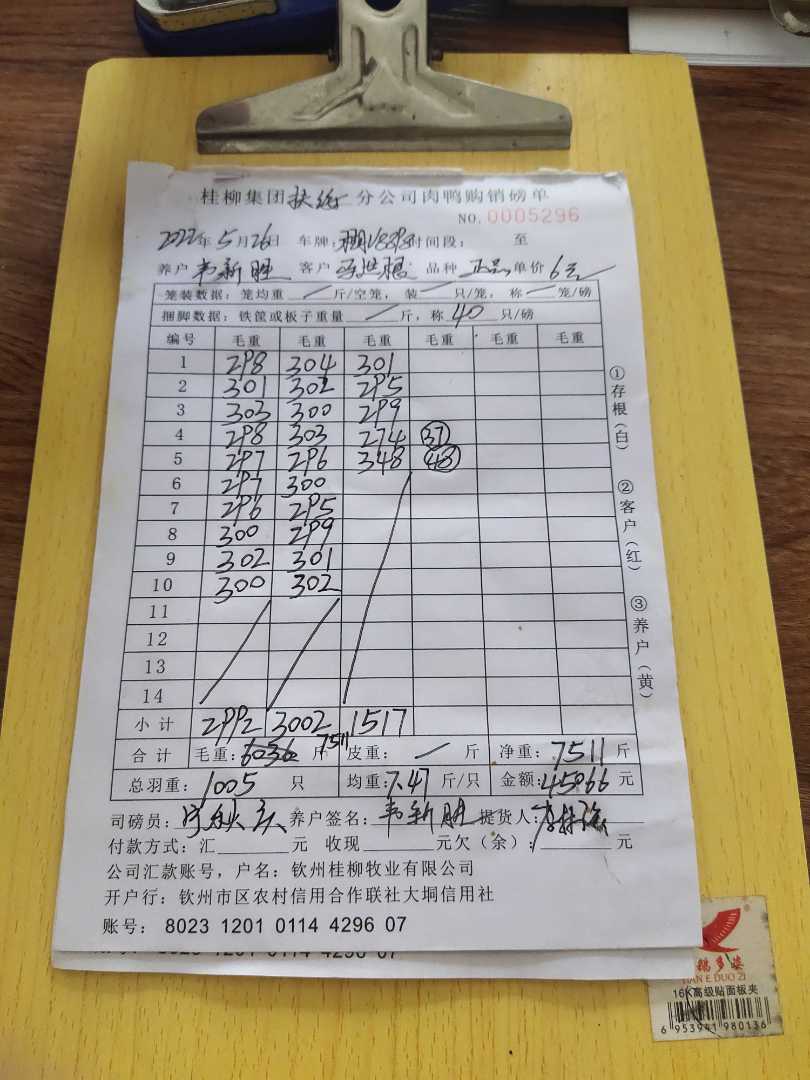 桂柳集团扶绥分公司肉鸭购销磅单
NO.0005296
2022年5月26日 车牌: 时间段: 至
养户 韦新胜 客户 品种 正品 单价 6元
笼装数据:笼均重 / 斤/空笼,装 / 只/笼,称 / 笼/磅
捆脚数据:铁筐或板子重量 / 斤,称 40 只/磅
编号 毛重 毛重 毛重 毛重 毛重 毛重
1 298 304 301
2 301 302 295
3 303 300 299
4 298 303 274 37
5 297 296 348 48
6 297 300
7 296 295
8 300 299
9 302 301
10 300 302
11
12
13
14
小计 2992 3002 1517
合计 毛重: 7511 斤 皮重: / 斤 净重: 7511 斤
总羽重: 1005 只 均重: 7.47 斤/只 金额: 45066 元
司磅员: 养户签名: 韦新胜 提货人:
付款方式:汇 元 收现 元欠(余): 元
公司汇款账号,户名:钦州桂柳牧业有限公司
开户行:钦州市区农村信用合作联社大垌信用社
账号: 8023 1201 0114 4296 07
①存根(白) ②客户(红) ③养户(黄)
8023 1201 0114 4296 07
TIAN E DUO ZI
16K高级贴面板夹
6 953941 980136